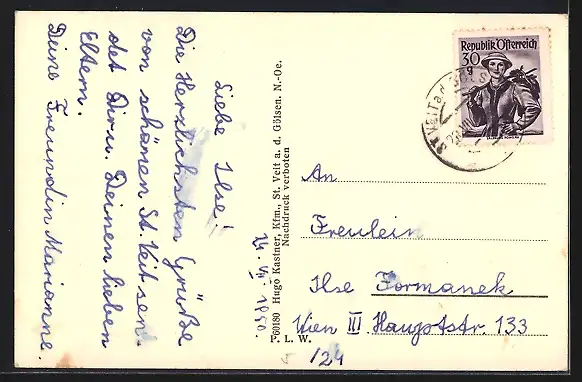 Liebe Ilse!
Die Herzlichsten Grüße
von schönen St. Veit sen-
det Dir u. Deinen lieben
Eltern.
Deine Freundin Marianne.
1950.
60180 Hugo Kastner, Kfm., St. Veit a. d. Gölsen. N.-Oe.
Nachdruck verboten
P. L. W.
Republik Österreich
30 g
St. Veit a.d. Gölsen
An
Freulein
Ilse Formanek
Wien III Hauptstr. 133
/24